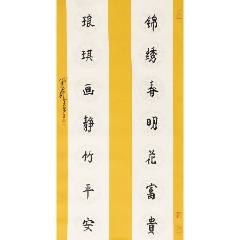 锦绣春明花富貴
琅琪画静竹平安